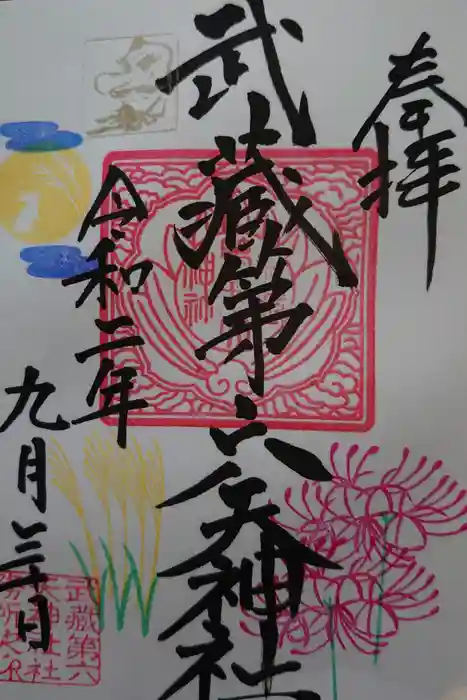 奉拝
武蔵第六天神社
令和二年
九月三十日
武蔵第六
天神社